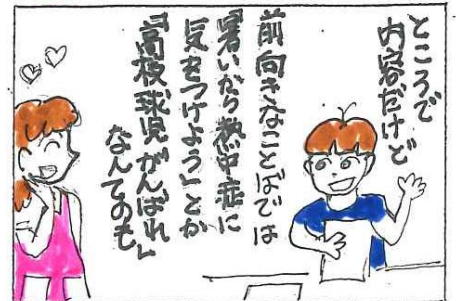 ところで
内容だけど
前向きなことばでは
『暑いから熱中症に
気をつけよう』とか
『高校球児がんばれ』
なんてのも